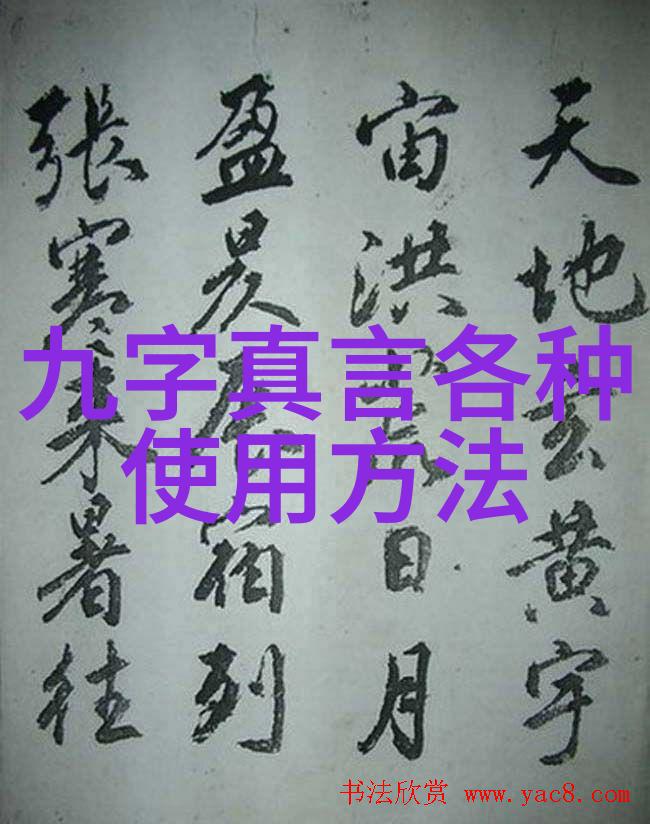 天地玄黄宇
宙洪荒日月
盈昃辰宿列
張寒来暑往
九字真言各种
使用方法
书法欣赏 www.yac8.com